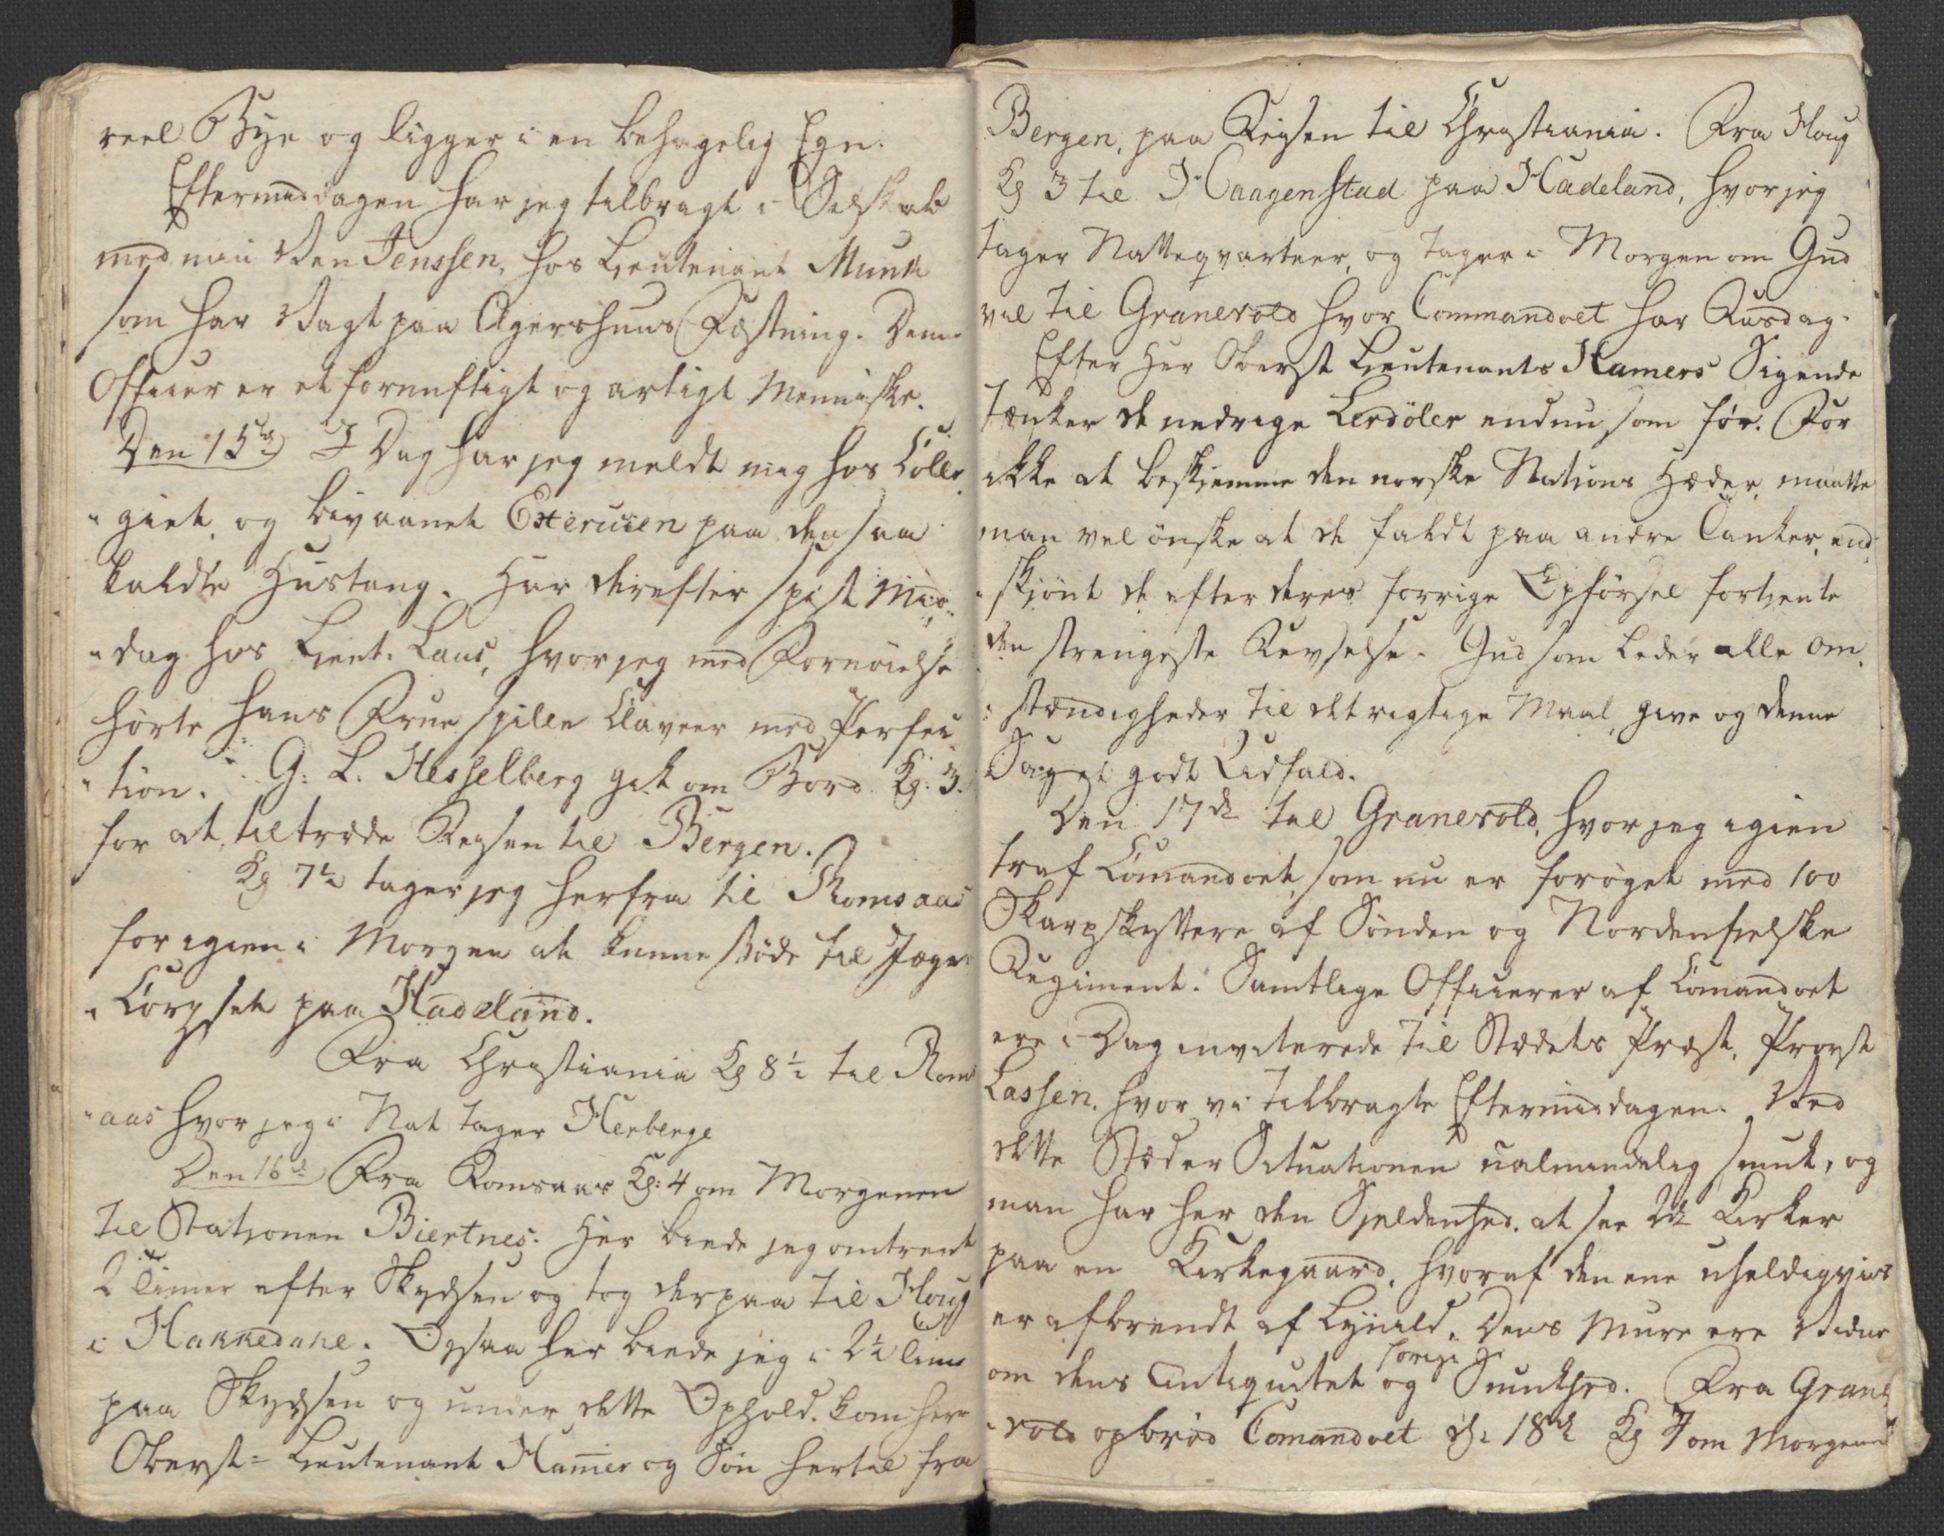 reel Bye og ligger i en behagelig Egn.
Eftermiddagen har jeg tilbragt i Selskab
med min Ven Jenssen, hos Lieutenant Munk
som har Vagt paa Agershuus Fæstning. Denne
Officier er et fornuftigt og artigt Menniske.
Den 15de I Dag har jeg meldt mig hos Colle-
giet, og bivaanet Exercien paa den saa
kaldte Hustang. Har derefter spist Mid-
dag hos Lieut. Laus, hvor jeg med Fornöielse
hörte hans Frue spille Claveer med Perfec-
tion. G: L. Hesselberg gik om Bord Kl: 3.
for at tiltræde Reysen til Bergen.
Kl 7½ tager jeg herfra til Romsaas
for igien i Morgen at kunne støde til Jæger
Corpset paa Hadeland.
Fra Christiania Kl 8½ til Roms
aas hvor jeg i Nat tager Herberge
Den 16de Fra Romsaas Kl: 4 om Morgenen
til Stationen Biertnes. Her biede jeg omtrent
2 Timer efter Skydsen og tog derpaa til Houg
i Hakkedahl. Ogsaa her biede jeg i 2½ Time
paa Skydsen og under dette Ophold kom Herr
Oberst-Lieutenant Hamer og Søn hertil fra
Bergen, paa Reysen til Christiania. Fra Houg
Kl 3 til Haagenstad paa Hadeland, hvor jeg
tager Natteqvarteer, og tager i Morgen om Gud
vil til Granevold hvor Commandoet har Rasdag.
Efter Her Oberst Lieutenants Hamers Sigende
tænker de nedrige Lerdöler endnu som før. For
ikke at beskiemme den norske Nations Hæder, maatte
man vel önske at de faldt paa andre Tanker, end-
skjönt de efter deres forrige Opförsel fortiente
den strengeste Revselse. Gud som leder alle Om-
stændigheder til det rigtige Maal, give og denne
Sag et godt Udfald.
Den 17de til Granevold, hvor jeg igien
traf Comandoet, som nu er forøget med 100
Skarpskyttere af Sönden og Nordenfielske
Regiment. Samtlige Officierer af Comandoet
ere i Dag inviterede til Stædets Præst, Provst
Lassen, hvor vi tilbragte Eftermiddagen. Ved
dette Stæd er Situationen ualmindelig smuk, og
man har her den Sieldenhed, at see 2de Kirker
paa en Kirkegaard, hvoraf den ene uheldigviis
er afbrendt af Lynild. Dens Mure ere Vidne
om dens Antiquitet og forrige Smukhed. Fra Grane-
vold opbrød Comandoet d: 18de Kl 7 om Morgenen